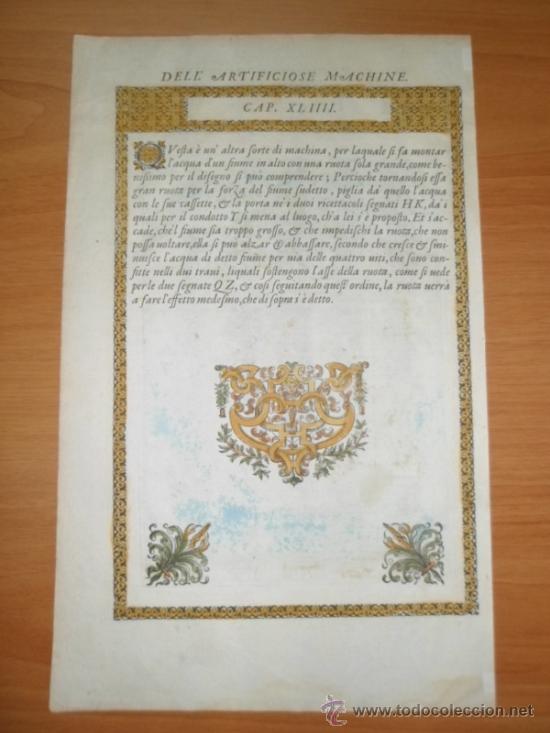 DELL' ARTIFICIOSE MACHINE.
CAP. XLIIII.
QVesta è un' altra sorte di machina, per laquale si fa montar
l'acqua d'un fiume in alto con una ruota sola grande, come be-
nissimo per il disegno si può comprendere; Percioche tornandosi essa
gran ruota per la forza del fiume sudetto, piglia da' quello l'acqua
con le sue cassette, & la porta ne' i duoi ricettacoli segnati H K, da' i
quali per il condotto Y si mena al luogo, ch'a lei s'è proposto, Et s'ac-
cade, che'l fiume sia troppo grosso, & che impedischi la ruota, che non
possa voltare, ella si puo alzar & abbassare, secondo che cresce & smi-
nuisce l'acqua di detto fiume per via delle quattro viti, che sono con-
fitte nelli dui travi, liquali sostengono l'asse della ruota, come si vede
per le due segnate Q Z, & cosi seguitando quest' ordine, la ruota verrà
a fare l'effetto medesimo, che di sopra s'è detto.
todocoleccion
www.todocoleccion.net